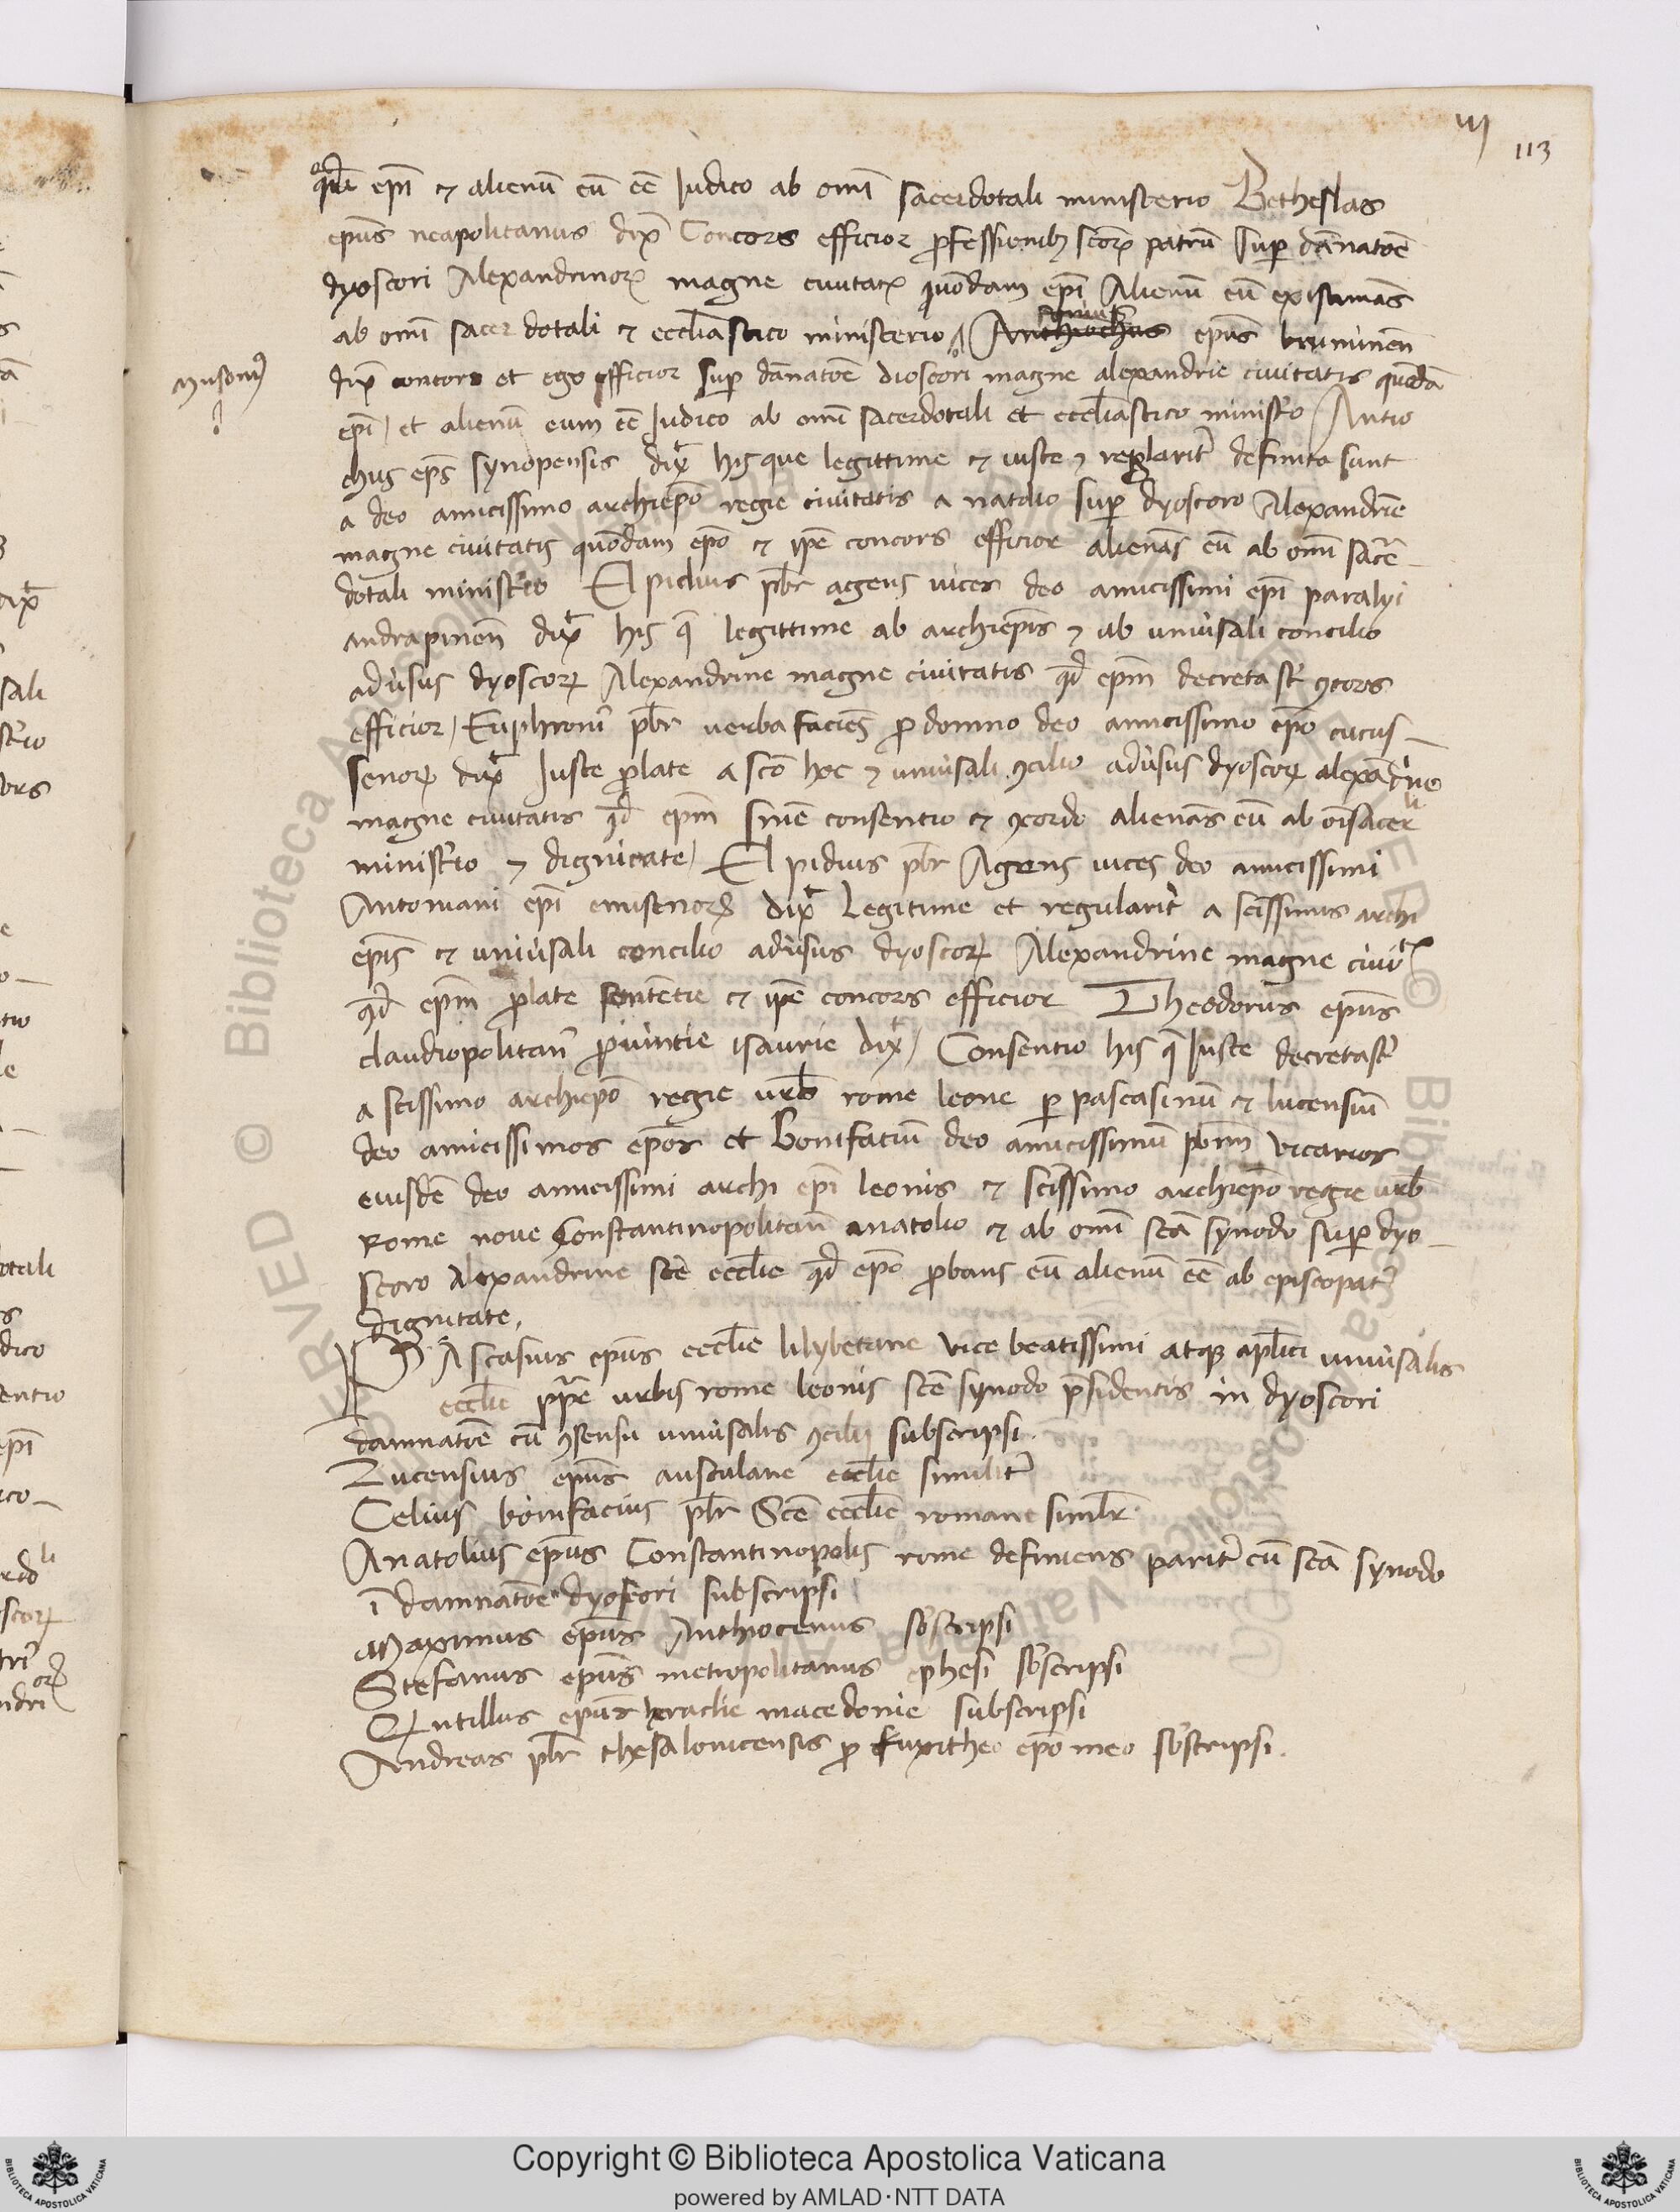 113
qdā epm̄ ⁊ alienū eū eē Iudico ab omī sacerdotali ministerio Betheslas
epūs neapolitanus dix̄ Concors efficior ꝓfessionibꝫ scōꝝ patrū sup dānatōe
dyoscori Alexandrinoꝝ magne ciuitatꝭ quōdam epī Alienū eū existimās
ab omī sacer dotali ⁊ eccliastico ministerio Anthiochus epūs
Musoniꝰ
dix̄ concors et ego efficior sup dānatōe dioscori magne alexandrie ciuitatis quōdā
epī / et alienū eum eē Iudico ab omī sacerdotali et eccliastico ministꝰo Antio
chus epūs synopensis dix̄ his que legittime ⁊ iuste ⁊ regularit̄ definita sunt
a deo amicissimo archiepō regie ciuitatis a natolio sup dyoscoro Alexandrie
magne ciuitatis quōdam epō ⁊ ipē concors efficior alienās eū ab omī sac̄e
dotali minist̄io Elpidius pb̄r agens uices deo amicissimi epī paralyi
andrapinen̄ dix̄ his q̄ legittime ab archiepīs ⁊ ab uniūsali concilio
adūsus dyoscoꝝ Alexandrine magne ciuitatis qd̄ epm̄ decreta st̄ ꝯcors
efficior / Euphroniꝰ pb̄r uerba faciēs ꝓ domno deo amicissimo epō cucus
senoꝝ dix̄ Iuste ꝓlate a scō hoc ⁊ uniūsali ꝯcilio adūsus dyoscoꝝ alexādrīe
magne ciuitatis qd̄ epm̄ snīe consentio ⁊ ꝯcordo alienās eū ab oī sacerli
minist̄io ⁊ dignitate / Elpidius pb̄r Agens uices deo amicissimi
Antoniani epī dix̄ Legitime et regularit̄ a scissimis archi
epīs ⁊ uniūsali concilio adūsus dyoscoꝝ Alexandrine magne ciuitꝭ
qd̄ epm̄ ꝓlate sentētie ⁊ ipē concors efficior Theodorus epūs
claudiopolitanꝰ ꝓuintie isaurie dix̄ / Consentio his q̄ Iuste decreta st̄
a scissimo archiepō regie urb̄ rome leone ꝑ pascasinū ⁊ lucensiū
deo amicissimos epōs et Bonifatiū deo amicissimū pbr̄m vicarios
eiusdē deo amicissimi archi epī leonis ⁊ scissimo archiepō regie urb̄
Rome noue Constantinopolitan̄ anatolio ⁊ ab omī scā synodo sup dyo
scoro Alexandrine scē ecclīe qd̄ epō ꝓbans eū alienū eē ab episcopat̄
dignitate,
PAscasius epūs ecclīe lilybetane vice beatissimi atqꝫ aplīci uniūsalis
ecclīe ppē urbis rome leonis scē synodo p̄sidentis in dyoscori
damnatōe cū ꝯsensu uniūsalis ꝯcilij subscripsi.
Lucensius epūs ausculane ecclīe similit̄
Celius bonifacius pb̄r Scē ecclīe romane similr̄
Anatolius epūs Constantinopolis rome definiens parit̄ cū scā synodo
ī damnatōe dyoscori subscripsi
Maximus epūs Anthiocenus sb̄scripsi
Stefanus epūs metropolitanus ephesi sb̄scripsi
Qntillus epūs heraclie macedonie subscripsi
Andreas pb̄r thesalonicensis ꝓ Euxitheo epō meo sb̄scripsi.
Copyright © Biblioteca Apostolica Vaticana
powered by AMLAD·NTT DATA